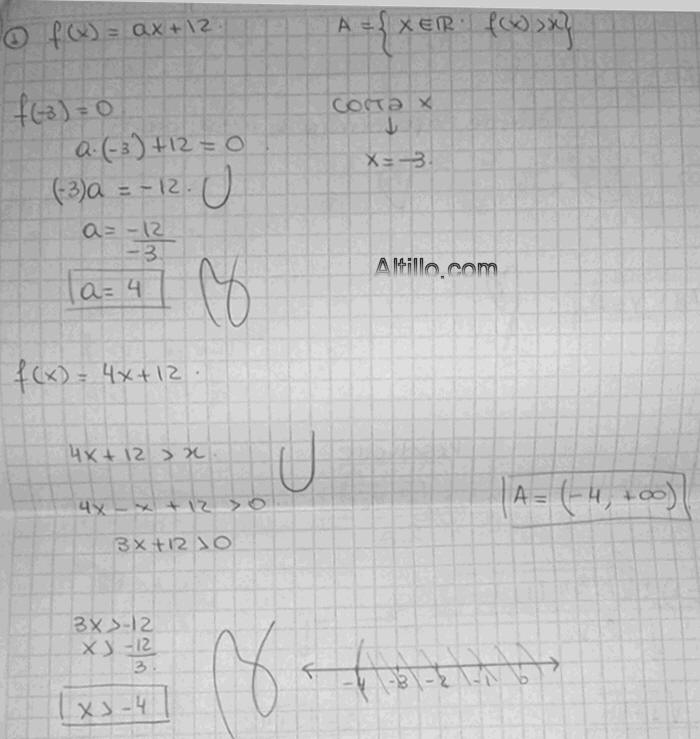 ① f(x) = ax+12. A = { x ∈ ℝ: f(x) > x }
f(-3) = 0
a·(-3) + 12 = 0
(-3)a = -12.
a = -12/-3
a = 4
corta x
↓
x = -3.
Altillo.com
f(x) = 4x+12.
4x + 12 > x.
4x - x + 12 > 0
3x + 12 > 0
A = (-4, +∞)
3x > -12
x > -12/3.
x > -4
-4 -3 -2 -1 0